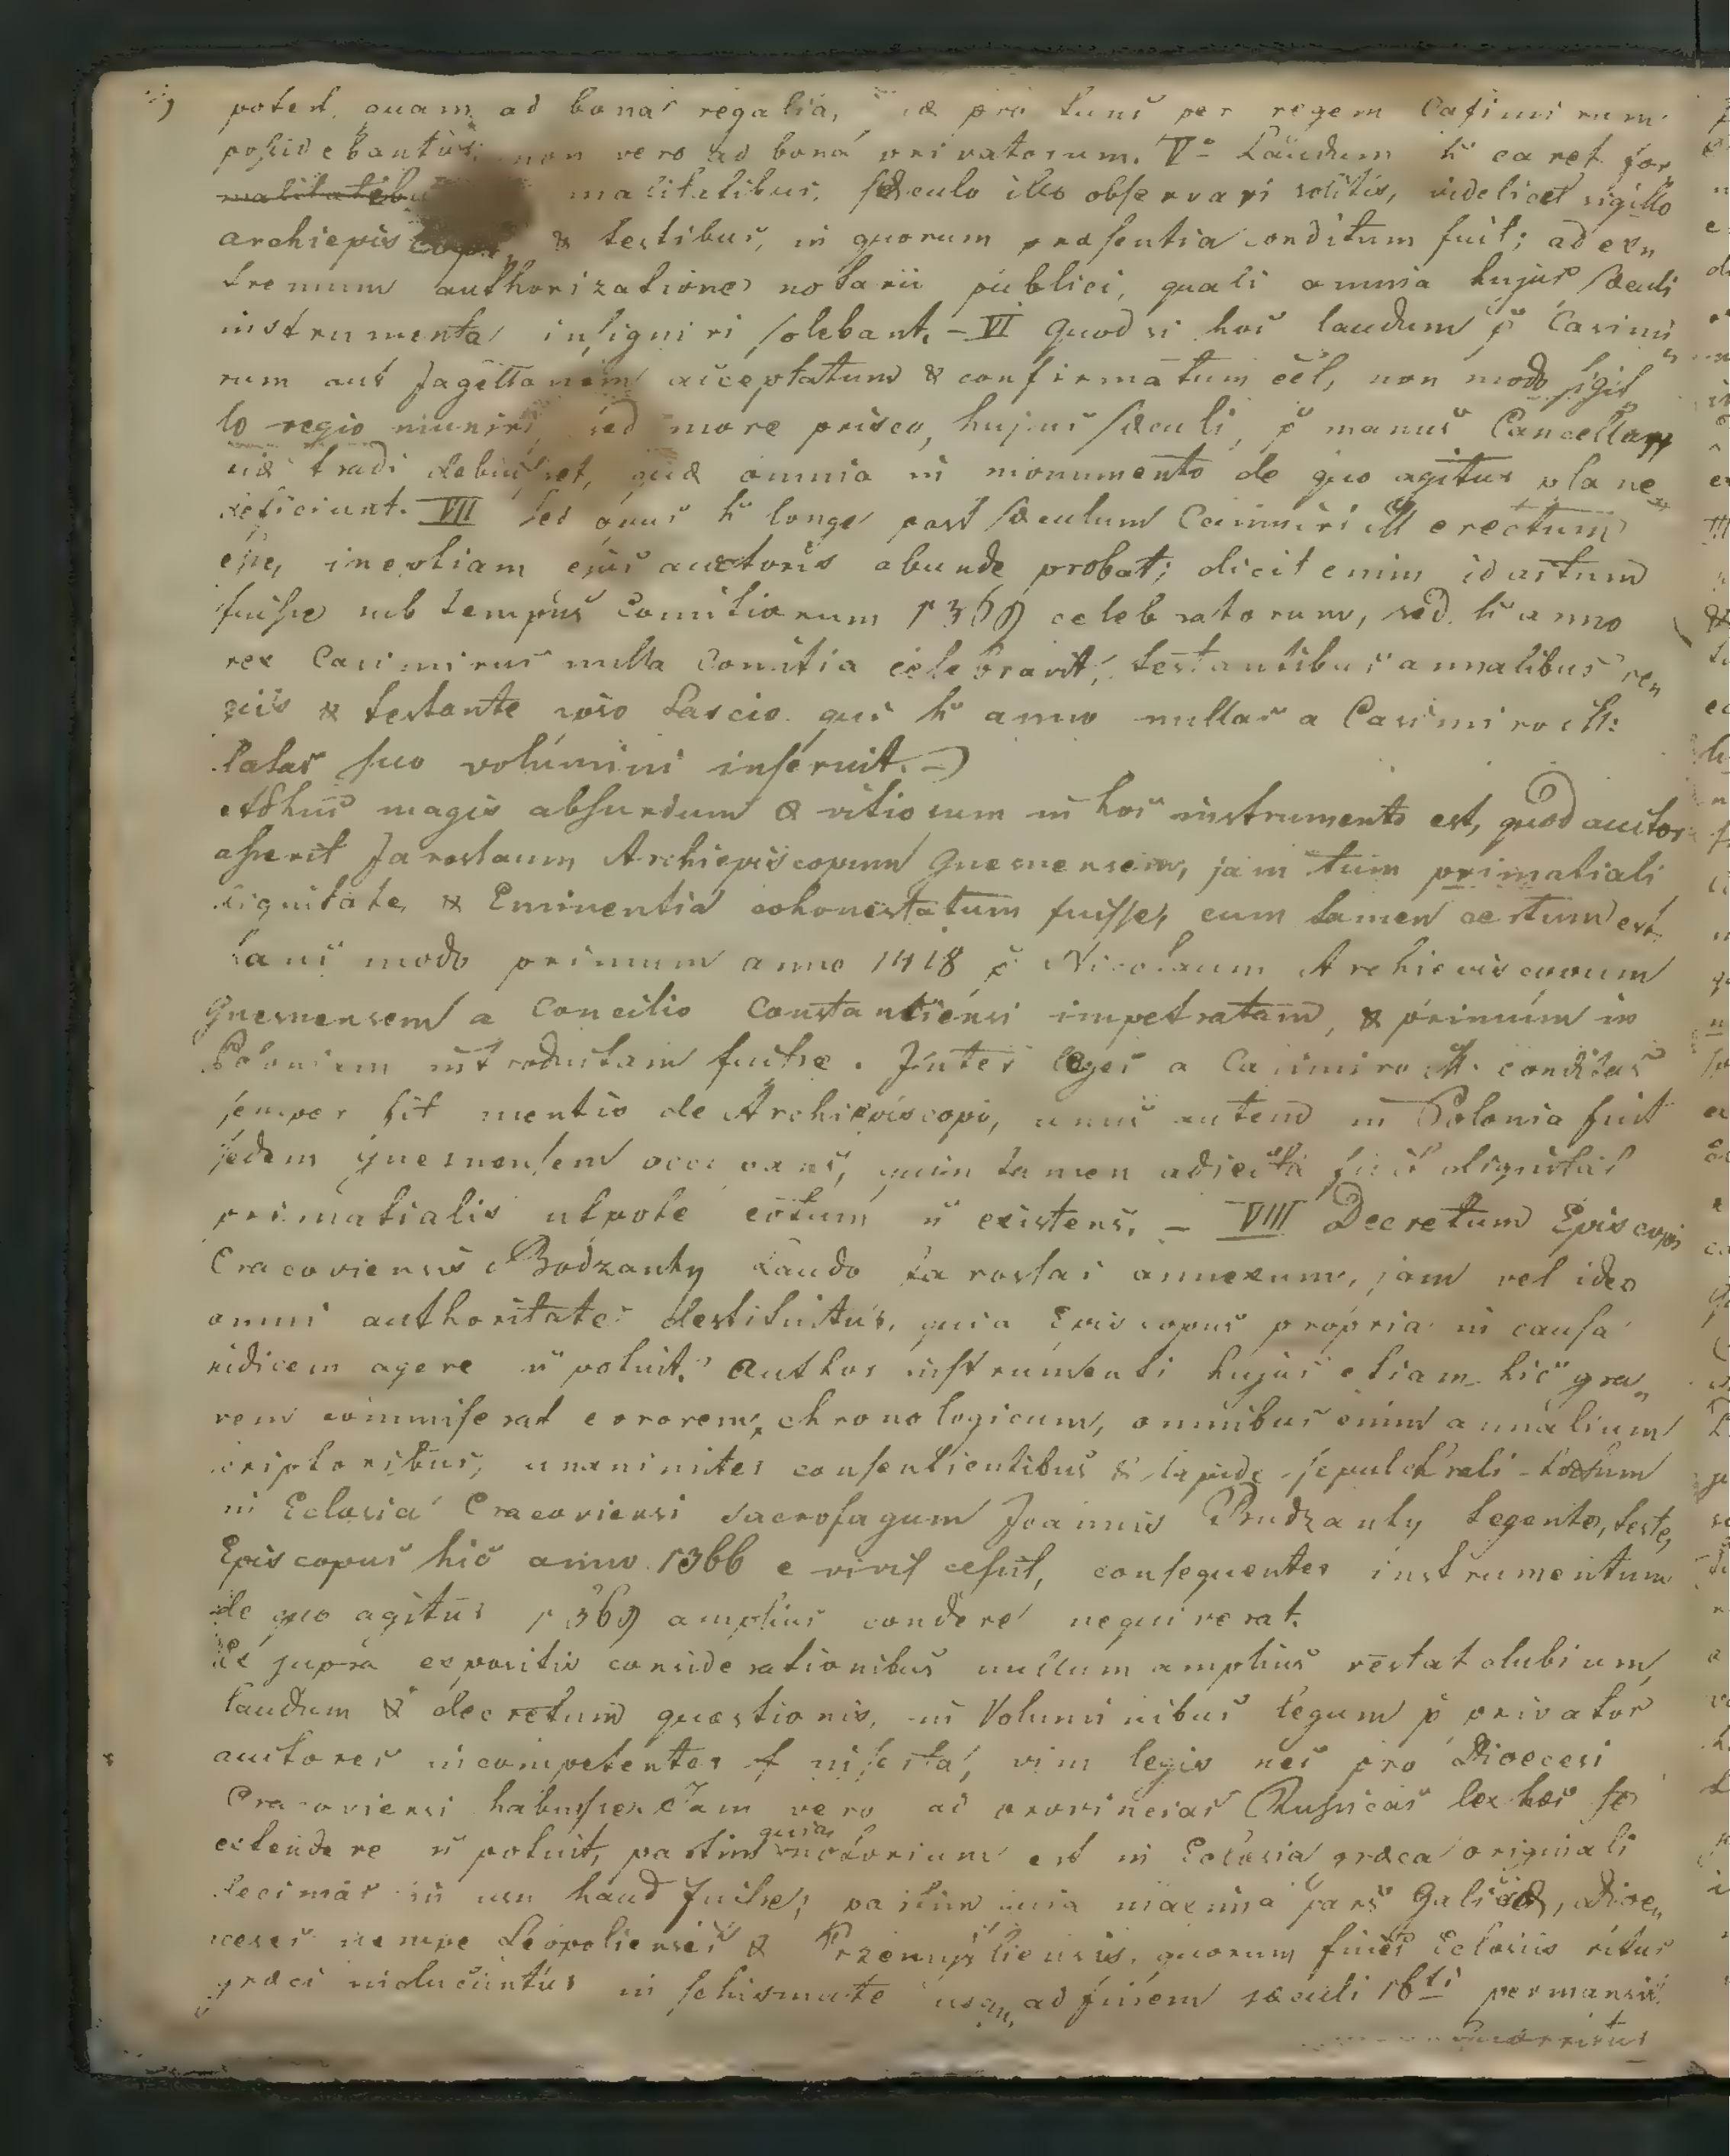 potest, quam ad bona regalia, quæ pro tunc per regem Casimirum
possidebantur, non vero ad bona privatorum. V° Laudum h caret for„
malitatibus, sæculo illo observari solitis, videlicet sigillo
archiepiscopi, & testibus, in quorum præsentia conditum fuit; ad ex„
tremum authorizatione notarii publici, quali omnia hujus sæculi
instrumenta insigniri solebant. – VI Quod si hoc laudum p Casimi„
rum aut Jagellonem acceptatum & confirmatum eet, non modo sigil„
lo regio muniri, sed more prisco, hujus sæculi, p manus Cancella„
rii tradi debuisset, quæ omnia in monumento de quo agitur plane
deficiunt. VII Sed opus h longe post sæculum Casimiri M erectum
esse, ineptiam ejus auctoris abunde probat; dicit enim id actum
fuisse sub tempus Comitiorum 1369 celebratorum, sed h anno
rex Casimirus nulla Comitia celebravit, testantibus annalibus re„
giis & testante ipso Lascio qui h anno nullas a Casimiro M:
latas suo volumini inseruit. –)
Adhuc magis absurdum & vitiosum in hoc instrumento est, quod auctor
asserit Jaroslaum Archiepiscopum Gnesnensem, jam tum primatiali
dignitate & Eminentia cohonestatum fuisse, cum tamen certum est
hanc modo primum anno 1418 p Nicolaum Archiepiscopum
Gnesnensem a Concilio Constantiensi impetratam, & primum in
Poloniam introductam fuisse. Inter leges a Casimiro M. conditas
semper fit mentio de Archiepiscopo, unus autem in Polonia fuit
sedem Gnesnensem occupans, quin tamen adjecta sit dignitas
primatialis utpote eotum ñ existens. – VIII Decretum Episcopi
Cracoviensis Bodzanty Laudo Jaroslai annexum, jam vel ideo
omni authoritate destituitur, quia Episcopus propria in causa
judicem agere ñ potuit. Author instrumenti hujus etiam hic gra„
vem commiserat errorem chronologicum, omnibus enim annalium
scriptoribus, unanimiter consentientibus & lapide sepulchrali
in Eclesia Cracoviensi sacrofagum Joannis Bodzanty tegente, teste,
Episcopus hic anno 1366 e vivis cessit, consequenter instrumentum
de quo agitur 1369 amplius condere nequiverat.
Ex supra expositis considerationibus nullum amplius restat dubium,
laudum & decretum quæstionis, in Voluminibus legum p privatos
auctores incompetenter inserta, vim legis nec pro Dioecesi
Cracoviensi habuisse. Jam vero ad provincias Russicas lex hæc se
extendere ñ potuit, partim quia notorium est in Eclesia græca originali
decimas in usu haud fuisse; partim quia maxima pars Galiciæ, Dioe„
ceses nempe Leopoliensis & Przemysliensis, quorum fines Eclesiis ritus
græci inducuntur in schismate usqu„ ad finem sæculi 16ti permansit.